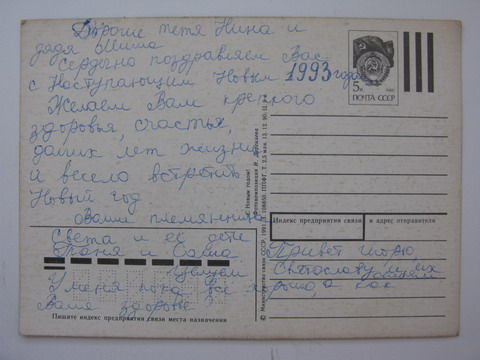 Дорогие тетя Нина и
дядя Миша
Сердечно поздравляем Вас
с Наступающим Новым 1993 годом
Желаем Вам крепкого
здоровья, счастья,
долгих лет жизни
и весело встретить
Новый год
Ваша племянница
Света и её дети
Таня и Саша
Целуем
У меня пока всё хорошо, а как
Ваше здоровье?
Привет Игорю,
Святославу и их
5к
ПОЧТА СССР
С Новым годом!
© Министерство связи СССР, 1991.
Индекс предприятия связи и адрес отправителя
Пишите индекс предприятия связи места назначения